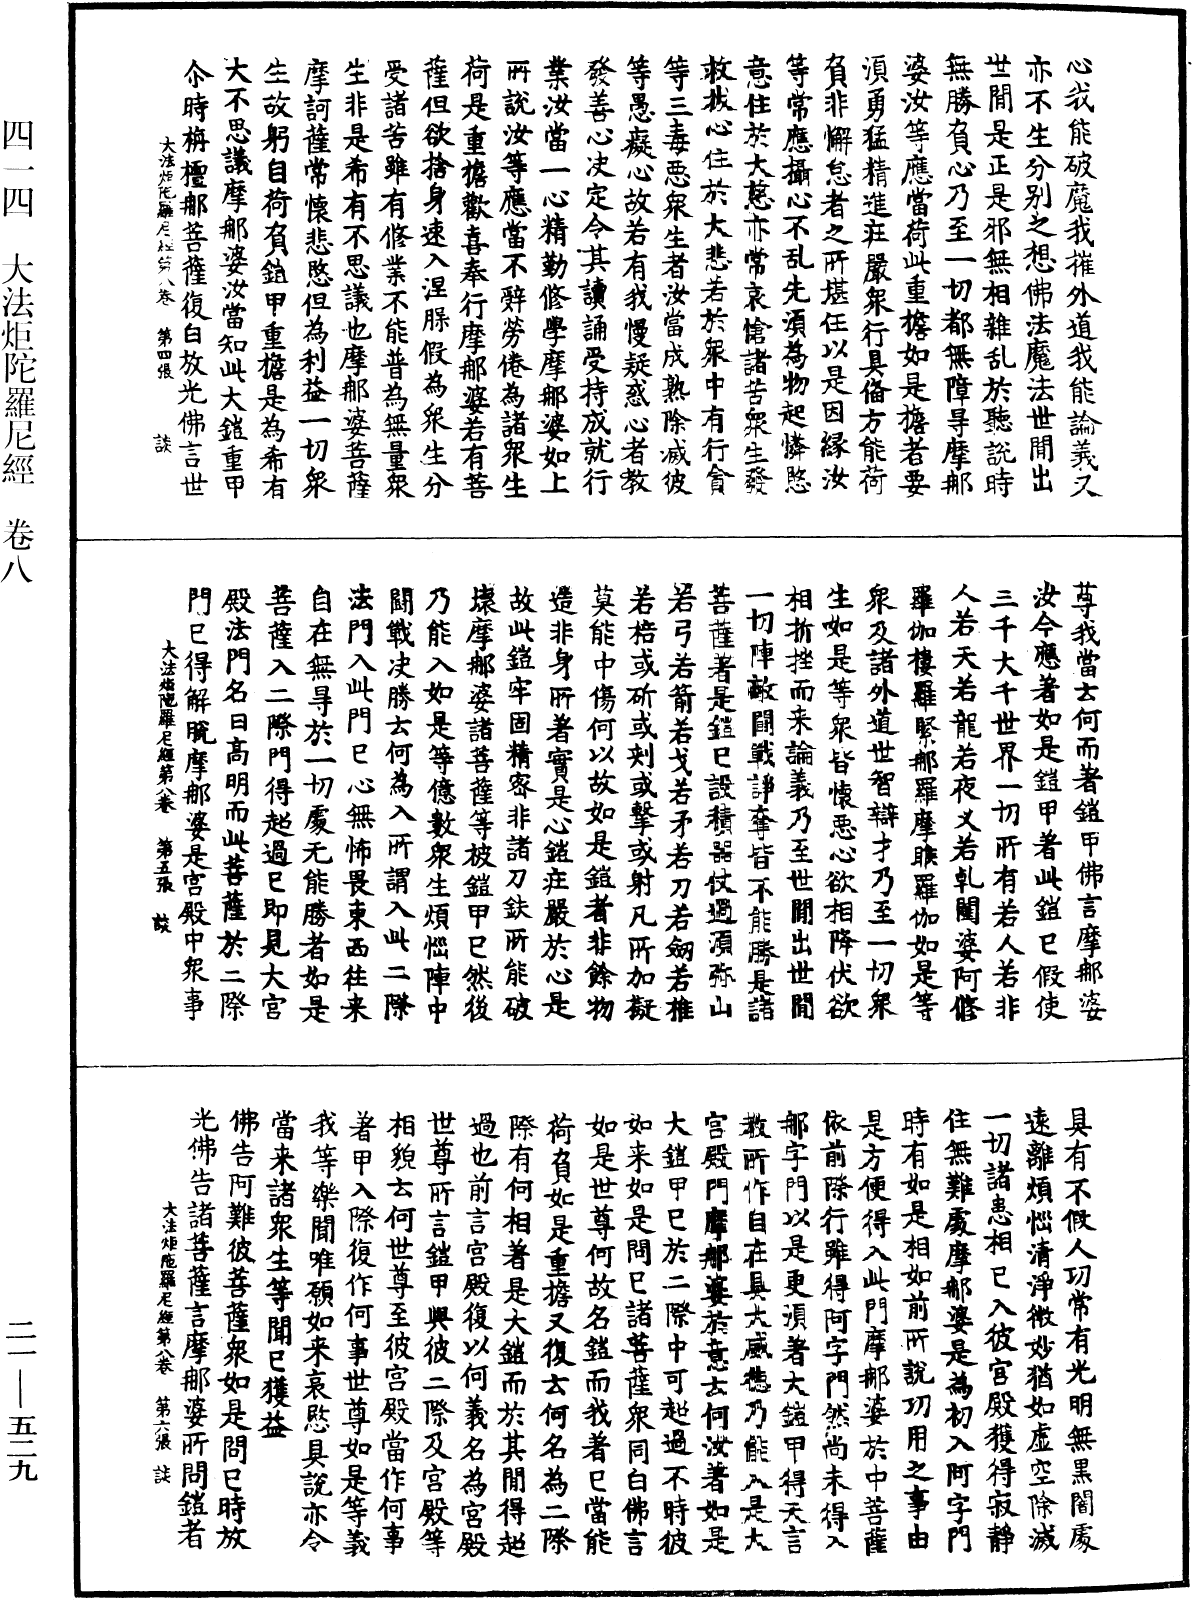 心我能破魔我摧外道我能論義又
亦不生分别之想佛法魔法世間出
世間是正是邪無相雜乱於聽說時
無勝負心乃至一切都無障㝵摩那
婆汝等應當荷此重擔如是擔者要
須勇猛精進莊嚴衆行具俻方能荷
負非懈怠者之所堪任以是因緣汝
等常應攝心不乱先須為物起憐愍
意住於大慈亦常哀愴諸苦衆生發
救拔心住於大悲若於衆中有行貪
等三毒惡衆生者汝當成熟除滅彼
等愚癡心故若有我慢疑惑心者教
發善心决定令其讀誦受持成就行
業汝當一心精勤修學摩那婆如上
所說汝等應當不辞勞倦為諸衆生
荷是重擔歡喜奉行摩那婆若有菩
薩但欲捨身速入涅槃假為衆生分
受諸苦雖有修業不能普為無量衆
生非是希有不思議也摩那婆菩薩
摩訶薩常懷悲愍但為利益一切衆
生故躬自荷負鎧甲重擔是為希有
大不思議摩那婆汝當知此大鎧重甲
尒時栴檀那菩薩復白放光佛言世
大法炬陀羅尼經第八卷 第四張 談
尊我當云何而著鎧甲佛言摩那婆
汝今應著如是鎧甲著此鎧已假使
三千大千世界一切所有若人若非
人若天若龍若夜叉若乹闥婆阿修
羅伽樓羅緊那羅摩睺羅伽如是等
衆及諸外道世智辯才乃至一切衆
生如是等衆皆懷惡心欲相降伏欲
相折挫而来論義乃至世間出世間
一切陣敵鬪戰諍奪皆不能勝是諸
菩薩著是鎧已設積器仗過須弥山
若弓若箭若戈若矛若刀若劒若椎
若棓或斫或刾或擊或射凡所加擬
莫能中傷何以故如是鎧者非餘物
造非身所著實是心鎧莊嚴於心是
故此鎧牢固精密非諸刀鈇所能破
壞摩那婆諸菩薩等被鎧甲已然後
乃能入如是等億數衆生煩惱陣中
鬪戰决勝云何為入所謂入此二際
法門入此門已心無怖畏東西往来
自在無㝵於一切處无能勝者如是
菩薩入二際門得起過已即見大宮
殿法門名曰高明而此菩薩於二際
門已得解脫摩那婆是宮殿中衆事
大法炬陀羅尼經第八卷 第五張 談
具有不假人功常有光明無黑闇處
遠離煩惱清淨微妙猶如虛空除滅
一切諸患相已入彼宮殿獲得寂靜
住無難處摩那婆是為初入阿字門
時有如是相如前所說功用之事由
是方便得入此門摩那婆於中菩薩
依前際行雖得阿字門然尚未得入
那字門以是更須著大鎧甲得天言
教所作自在具大威德乃能入是大
宮殿門摩那婆於意云何汝著如是
大鎧甲已於二際中可起過不時彼
如来如是問已諸菩薩衆同白佛言
如是世尊何故名鎧而我著已當能
荷負如是重擔又復云何名為二際
際有何相著是大鎧而於其間得起
過也前言宮殿復以何義名為宮殿
世尊所言鎧甲與彼二際及宮殿等
相貌云何世尊至彼宮殿當作何事
著甲入際復作何事世尊如是等義
我等樂聞唯願如来哀愍具說亦令
當来諸衆生等聞已獲益
佛告阿難彼菩薩衆如是問已時放
光佛告諸菩薩言摩那婆所問鎧者
大法炬陀羅尼經第八卷 第六張 談
四一四 大法炬陀羅尼經 卷八
二一—五二九